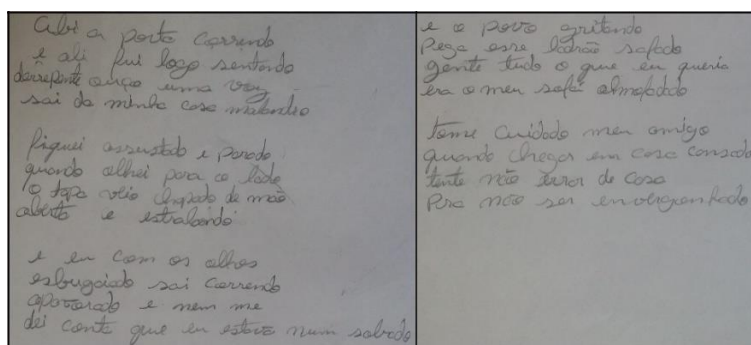 Abi a porta correndo
e ali fui logo sentando
derrepente ouço uma voz
sai da minha casa malandro
fiquei assustado e parado
quando olhei para o lado
o tapa veio chapado de mão
aberta e estralando
e eu com os olhos
esbugaiado sai correndo
apavorado e nem me
dei conta que eu estava num sobrado
e o povo gritando
Pega esse ladrão safado
gente tudo o que eu queria
era o meu sofá almofadado
tome cuidado meu amigo
quando chegar em casa cansado
tente não errar de casa
Pra não ser envergonhado